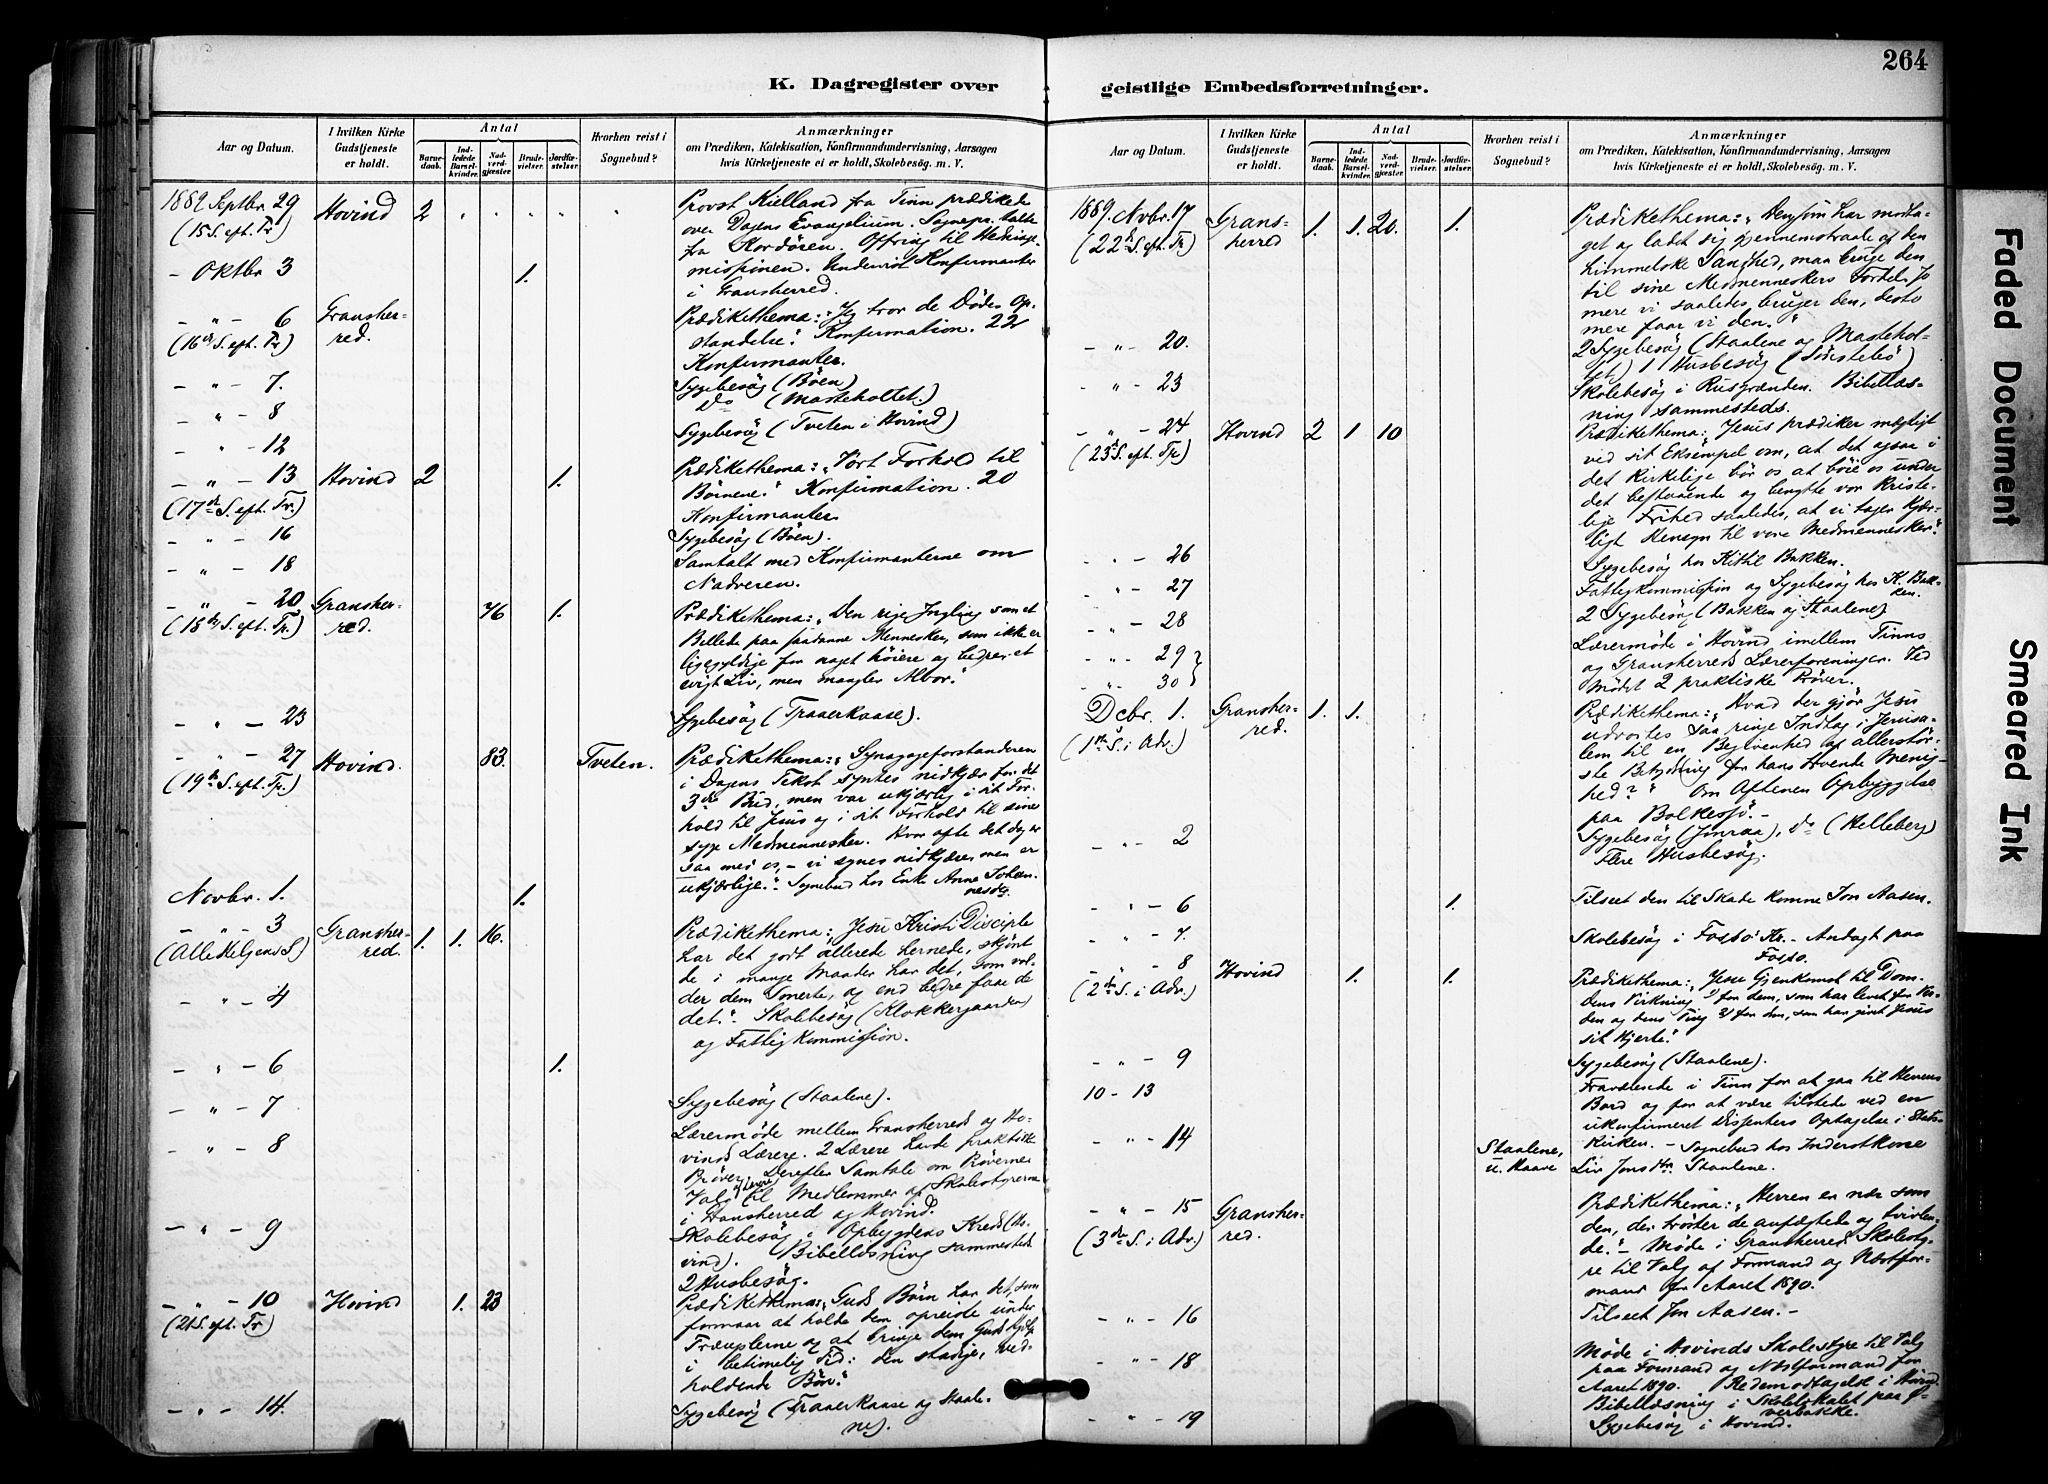 264
K. Dagregister over
geistlige Embedsforretninger.
Aar og Datum.
I hvilken Kirke
Gudstjeneste
er holdt.
Antal
Barne-
daab.
Ind-
ledede
Barsel-
kvinder.
Nad-
verd-
gjæster.
Brude-
vielser.
Jordfæ-
stelser.
Hvorhen reist i
Sognebud?
Anmærkninger
om Prædiken, Katekisation, Konfirmandundervisning, Aarsagen
hvis Kirketjeneste ei er holdt, Skolebesøg. m. V.
1889 Septbr. 29 Hovind 2
(15 S. eft. Tr)
Provst Kielland fra Tinn prædikede
over Dagens Evangelium.
fra Kordören. Offring til Hedninge-
missionen. Undervist Konfirmanter
i Gransherred.
- Oktbr 3 1.
- " - 6 Gransher-
(16de S. eft. Tr) red.
Prædikethema: "Jeg tror de Dødes Op-
standelse." Konfirmation. 22
Konfirmanter.
- " - 7.
Sygebesøg (Böen)
- " - 8
Do (Masteholtet.)
- " - 12
Sygebesøg (Tveten i Hovind)
- " - 13 Hovind 2 1.
(17de S. eft. Tr.)
Prædikethema: "Vort Forhold til
Börnene." Konfirmation. 20
Konfirmanter
- " - 16
Sygebesøg (Böen).
- " - 18
Samtalt med Konfirmanterne om
Nadveren.
- " - 20 Gransher- 76 1.
(18de S. eft. Tr.) red.
Prædikethema: "Den rige Yngling som et
Billede paa saadanne Mennesker, som ikke er
ligegyldige for noget höiere og bedre, et
evigt Liv, men mangler Alvor."
- " - 23
Sygebesøg (Traaerkaase).
- " - 27 Hovind. 83. Tveten.
(19de S. eft. Tr.)
Prædikethema: "Synagogeforstanderen
i Dagens Tekst syntes nidkjær for det
3die Bud, men var ukjærlig i sit For-
hold til Jesus og i sit Forhold til sine
syge Medmennesker. Hvor ofte det dog er
saa med os, - vi synes nidkjære, men er
ukjærlige." - Sognebud hos Enke Anne Johan-
nesdtr.
Novbr. 1. 1.
- " - 3 Gransher- 1. 1. 16.
(Alle Helgens S) red.
Prædikethema: "Jesu Kristi Disciple
har det godt allerede hernede, skjönt
de i mange Maader har det, som vol-
der dem Smerte, og end bedre faar de
det." - Skolebesøg (Klokkergaarden)
og Fattigkommission.
- " - 4
- " - 6 1.
- " - 7
Sygebesøg (Staalene).
- " - 8
Lærermøde mellem Gransherreds og Ho-
vinds Lærere. 2 Lærere havde praktiske
Prøver. Derefter Samtale om Prøverne
Valg til Medlemmer af Skolestyrerne
i Gransherred og Hovind.
- " - 9
Skolebesøg i Opbygdens Kreds (Ho-
vind). Bibellæsning sammesteds
2 Husbesøg.
- " - 10 Hovind 1. 23
(21 S. eft. Tr)
Prædikethema: "Guds Børn har det, som
formaar at holde dem opreiste under
Trængslerne og at bringe dem Guds Hjelp
i betimelig Tid: den stadige, ved-
holdende Bøn."
- " - 14.
Sygebesøg (Traaerkaase og Staale-
ne).
Aar og Datum.
I hvilken Kirke
Gudstjeneste
er holdt.
Antal
Barne-
daab.
Ind-
ledede
Barsel-
kvinder.
Nad-
verd-
gjæster.
Brude-
vielser.
Jordfæ-
stelser.
Hvorhen reist i
Sognebud?
Anmærkninger
om Prædiken, Katekisation, Konfirmandundervisning, Aarsagen
hvis Kirketjeneste ei er holdt, Skolebesøg. m. V.
1889. Novbr. 17 Grans- 1. 1. 20. 1.
(22de S. eft. Tr.) herred
Prædikethema: "Den som har modta-
get og ladet sig gjennemstraale af den
himmelske Sandhed, maa bruge den
til sine Medmenneskers Fordel. Jo
mere vi saaledes bruger den, desto
mere faar vi den."
- " - 20.
2 Sygebesøg (Staalene og Mastehol-
tet) 1 Husbesøg (Sönstebö)
- " - 23
Skolebesøg i Rusgrænden. Bibellæs-
ning sammesteds.
- " - 24 Hovind 2 1 10
(23de S. eft. Tr.)
Prædikethema: "Jesus prædiker mægtigt
ved sit Eksempel om, at det ogsaa i
det kirkelige bør os at bøie os under
det bestaaende og benytte vor kriste-
lige Frihed saaledes, at vi tager kjær-
ligt Hensyn til vore Medmennesker."
- " - 26
Sygebesøg hos Kittil Bakken.
- " - 27
Fattigkommission og Sygebesøg hos K. Bak-
ken.
- " - 28
2 Sygebesøg (Bakken og Staalene)
- " - 29
- " - 30
Lærermøde i Hovind imellem Tinns
og Gransherreds Lærerforeninger. Ved
Mødet 2 praktiske Prøver.
Dcbr. 1. Gransher- 1. 1.
(1ste S. i Adv.) red.
Prædikethema: "Hvad der gjør Jesu
udvortes saa ringe Indtog i Jerusa-
lem til en Begivenhed af allerstør-
ste Betydning for hans troende Menig-
hed?" Om Aftenen Opbyggelse
paa Bolkesjø. -
- " - 2
Sygebesøg (Jonraa), do (Helleberg)
Flere Husbesøg.
- " - 6 1.
Tilseet den til Skade komne Jon Aasen.
- " - 7.
Skolebesøg i Fossö Kr. - Andagt paa
Fossö.
- " - 8 Hovind 1. 1.
(2den S. i Adv.)
Prædikethema: "Jesu Gjenkomst til Dom-
dens Virkning 1) for dem, som har levet for Ver-
den og dens Ting 2) for dem, som har givet Jesus
sit Hjerte."
- " - 9
Sygebesøg (Staalene).
10 - 13
Fraværende i Tinn for at gaa til Herrens
Bord og for at være tilstede ved en
ukonfirmeret Dissenters Optagelse i Stats-
Kirken. -
- " - 14 Staalene,
u. Maane
Sognebud hos Inderstkone
Liv Jonsdtr. Staalene.
- " - 15 Gransher-
(3die S. i Adv.) red.
Prædikethema: "Herren er nær som
den, der trøster de anfægtede og tvivlen-
de." - Møde i Gransherreds Skolesty-
re til Valg af Formand og Næstfor-
mand for Aaret 1890.
- " - 16
Tilseet Jon Aasen. -
- " - 18
Møde i Hovinds Skolestyre til Valg
paa Formand og Næstformand for
Aaret 1890. Redemodtagelse i Hovind.
Bibellæsning i Skolelokalet paa Ø-
verbakke.
- " - 19
Sygebesøg i Hovind.
Faded Document
Smeared Ink